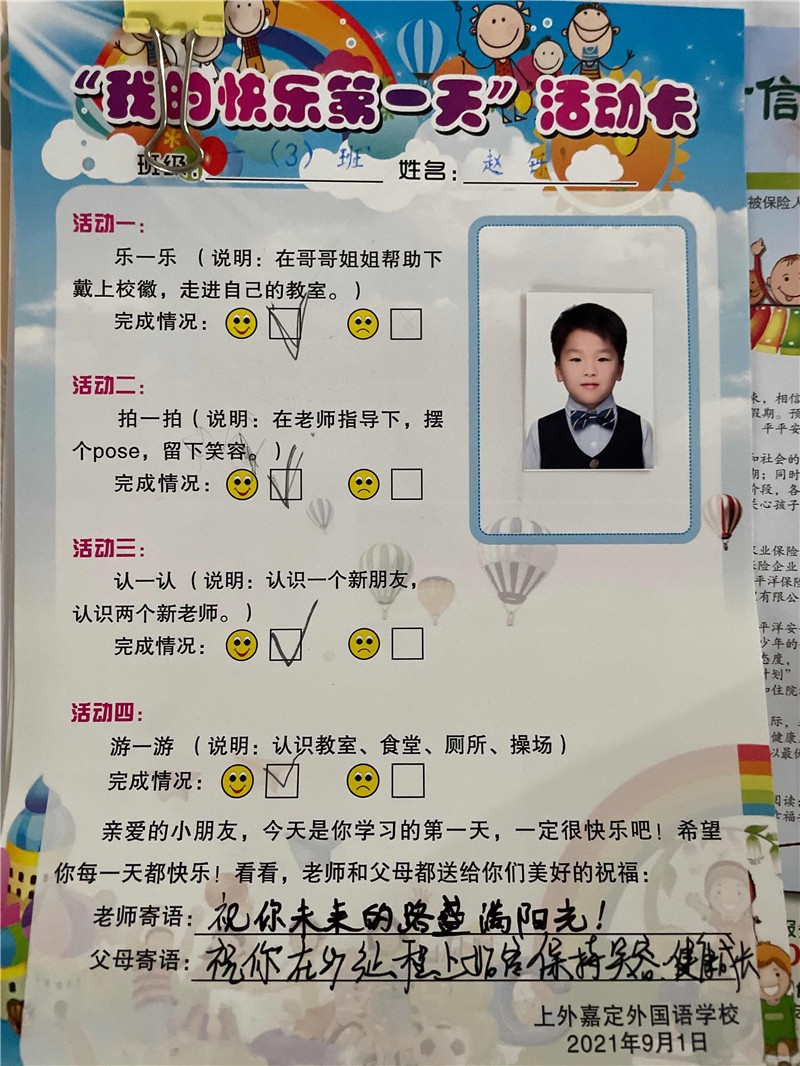 “我的快乐第一天”活动卡
班级：一（3）班 姓名：赵
活动一：
乐一乐 （说明：在哥哥姐姐帮助下
戴上校徽，走进自己的教室。）
完成情况：
活动二：
拍一拍（说明：在老师指导下，摆
个pose，留下笑容。）
完成情况：
活动三：
认一认（说明：认识一个新朋友，
认识两个新老师。）
完成情况：
活动四：
游一游 （说明：认识教室、食堂、厕所、操场）
完成情况：
亲爱的小朋友，今天是你学习的第一天，一定很快乐吧！希望
你每一天都快乐！看看，老师和父母都送给你们美好的祝福：
老师寄语：祝你未来的路盛满阳光！
父母寄语：祝你在今后征程上始终保持笑容、健康成长
上外嘉定外国语学校
2021年9月1日
信
被保险人
来，相信
假期。预
平平安
和社会的
期；同时
阶段，各
关心孩子
业保险
险企业
平洋保险
有限公
平洋安
少年的
态度，
计划”
和住院
际，
健康
以最优
阅读：